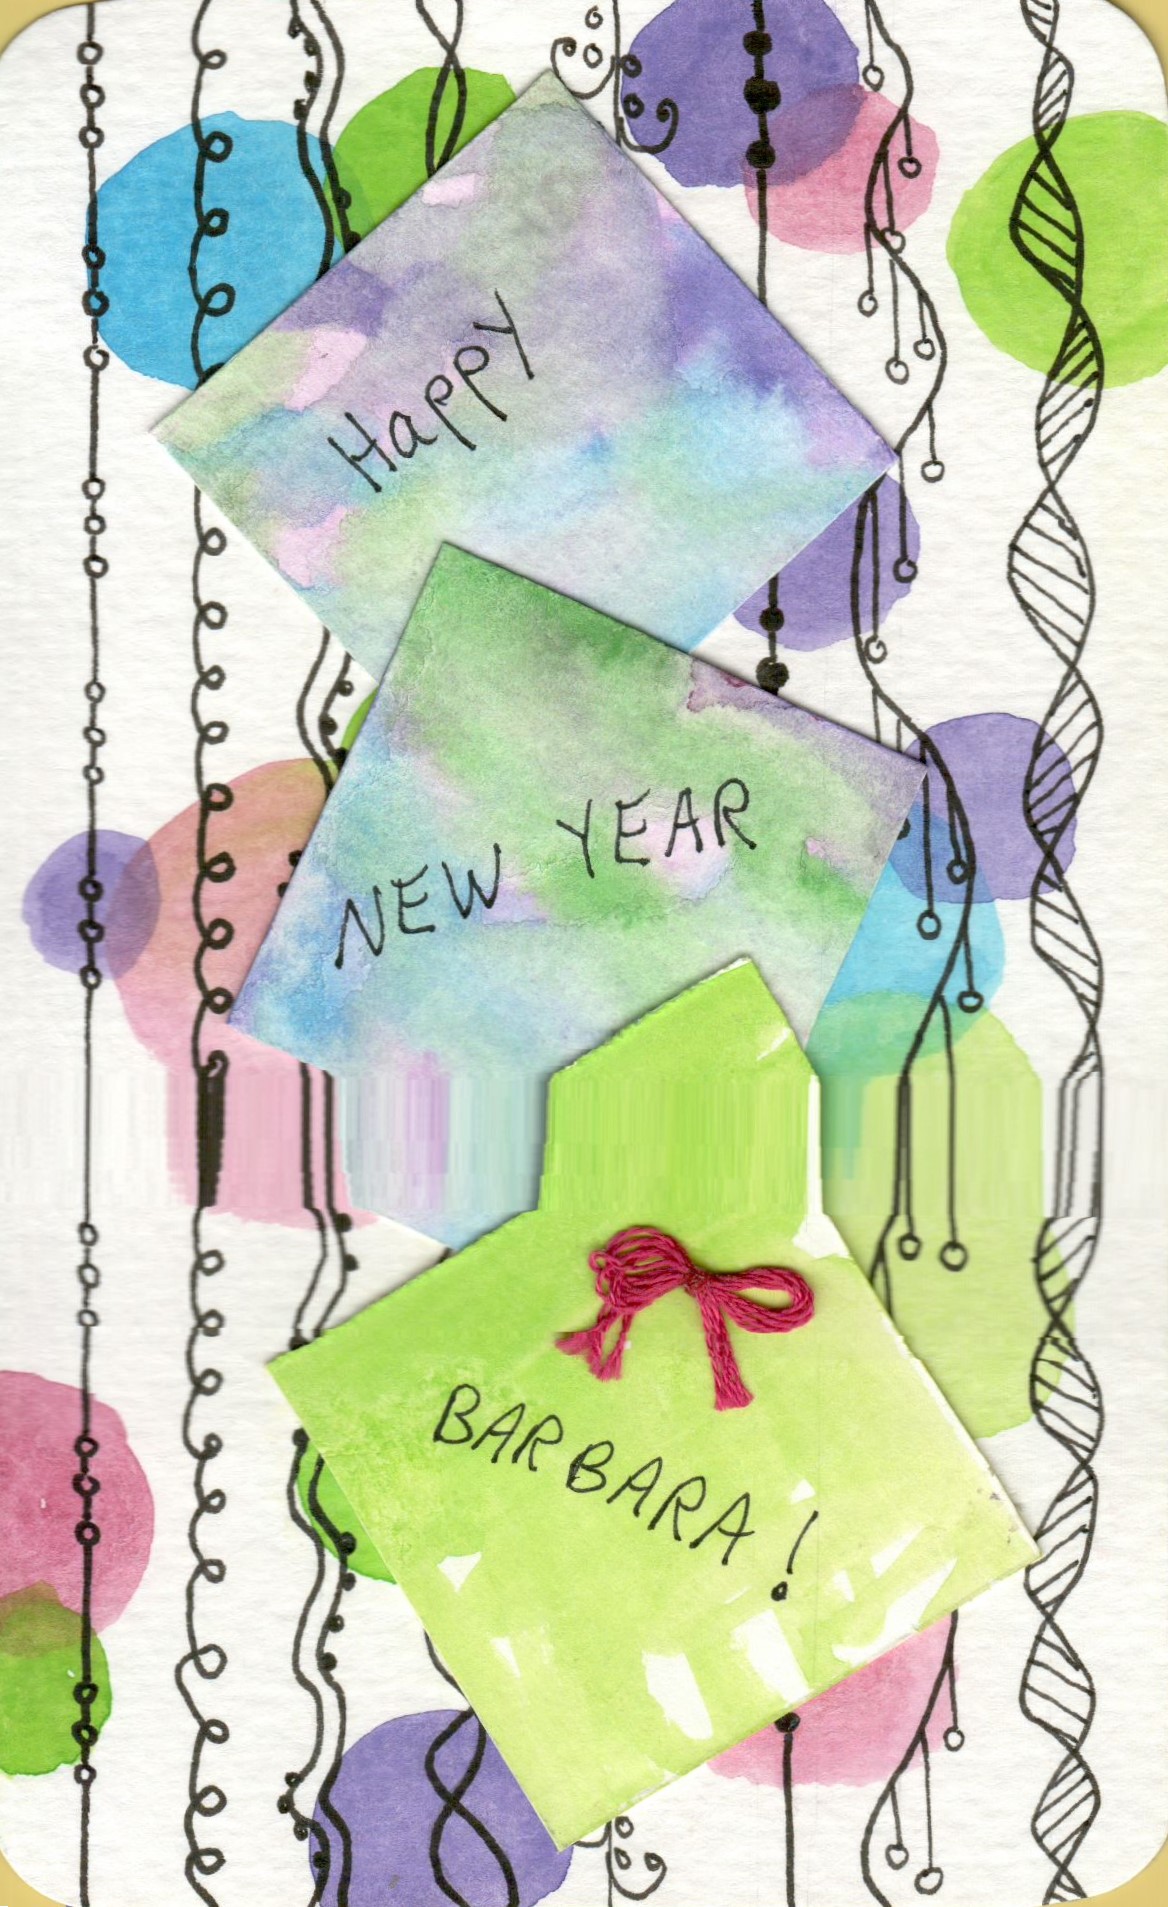 Happy
NEW YEAR
BARBARA!